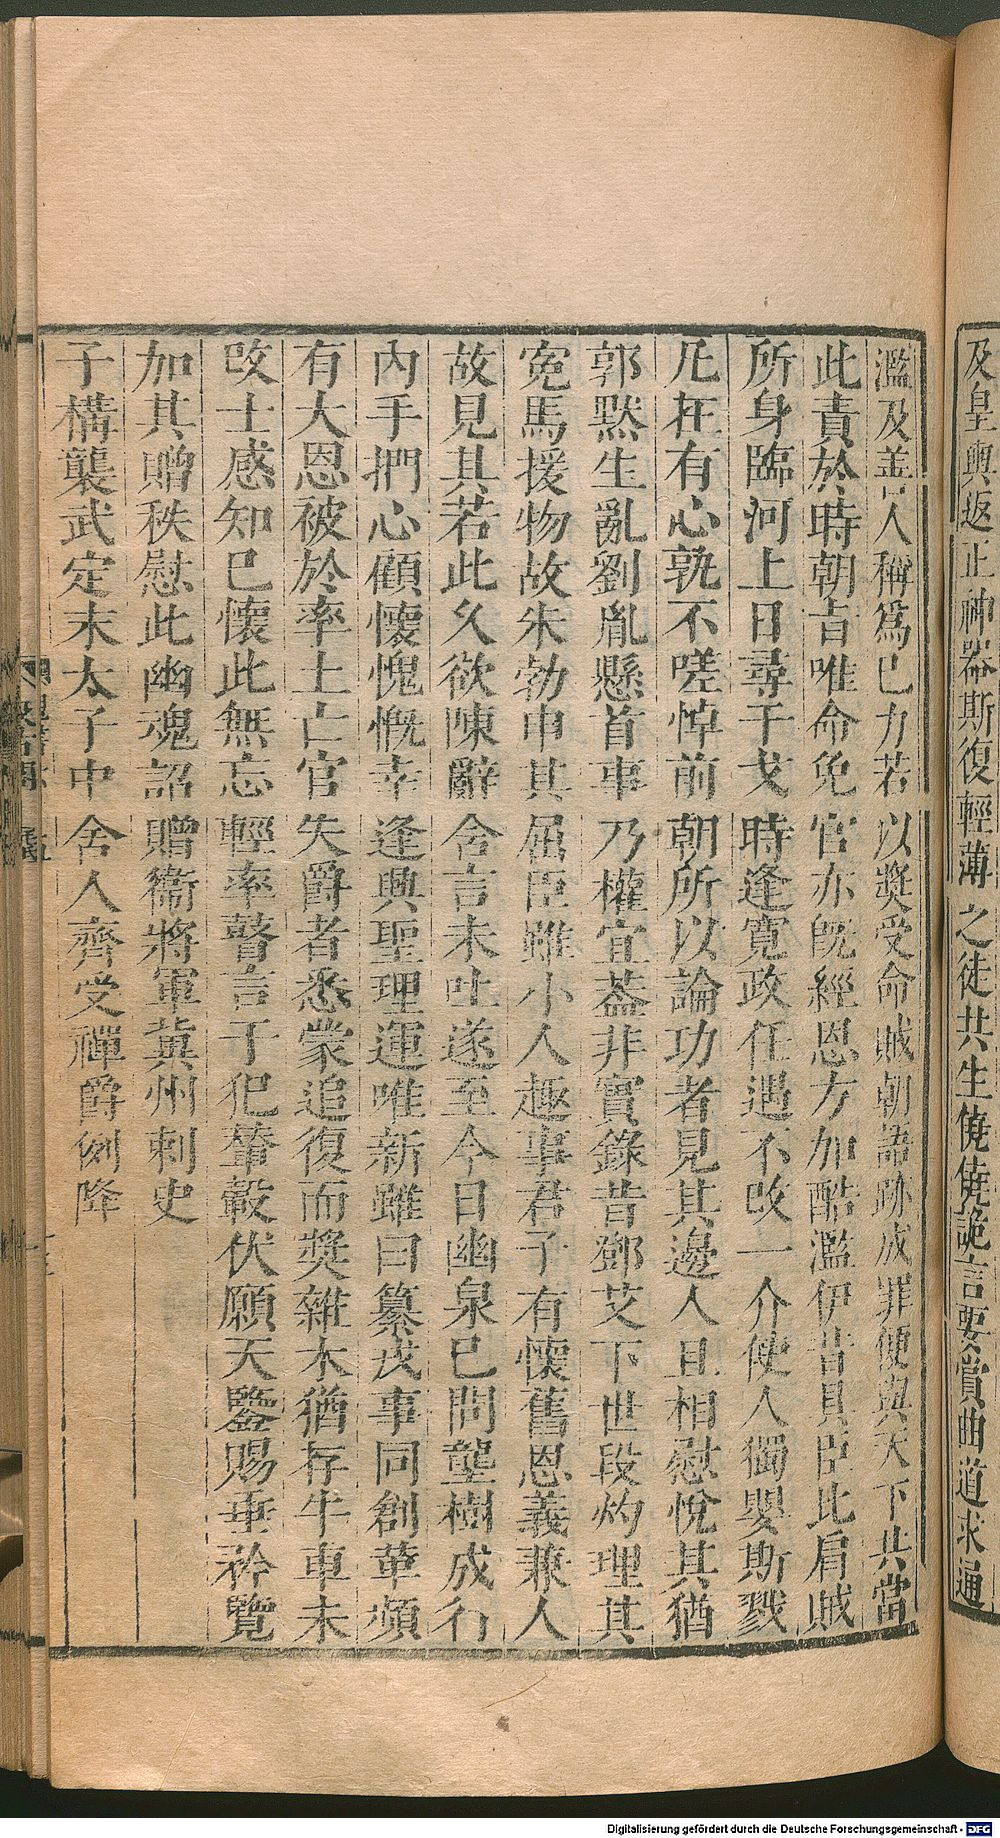 及皇輿返正神器斯復輕薄之徒共生僥僥詭言要賞曲道求通
濫及善人稱爲已力若以獎受命賊朝語跡成罪便與天下共當
此責於時朝旨唯命免官亦旣經恩方加酷濫伊昔具臣比肩賊
所身臨河上日尋干戈時逢寛政任遇不改一介使人獨嬰斯戮
凡在有心孰不嗟悼前朝所以論功者見其邊人且相慰悅其猶
郭黙生亂劉胤懸首事乃權宜葢非實錄昔鄧艾下世段灼理其
寃馬援物故朱勃申其屈臣雖小人趣事君子有懷舊恩義兼人
故見其若此久欲陳辭含言未吐遂至今日幽泉已閉壟樹成行
內手捫心顧懷愧慨幸逢興聖理運唯新雖曰纂戎事同創革頻
有大恩被於率土亡官失爵者悉蒙追復而獎雜木猶存牛車未
改士感知已懷此無忘輕率瞽言干犯輦轂伏願天鑒賜垂矜覽
加其贈秩慰此幽魂詔贈衞將軍冀州刺史
子構襲武定末太子中舍人齊受禪爵例降